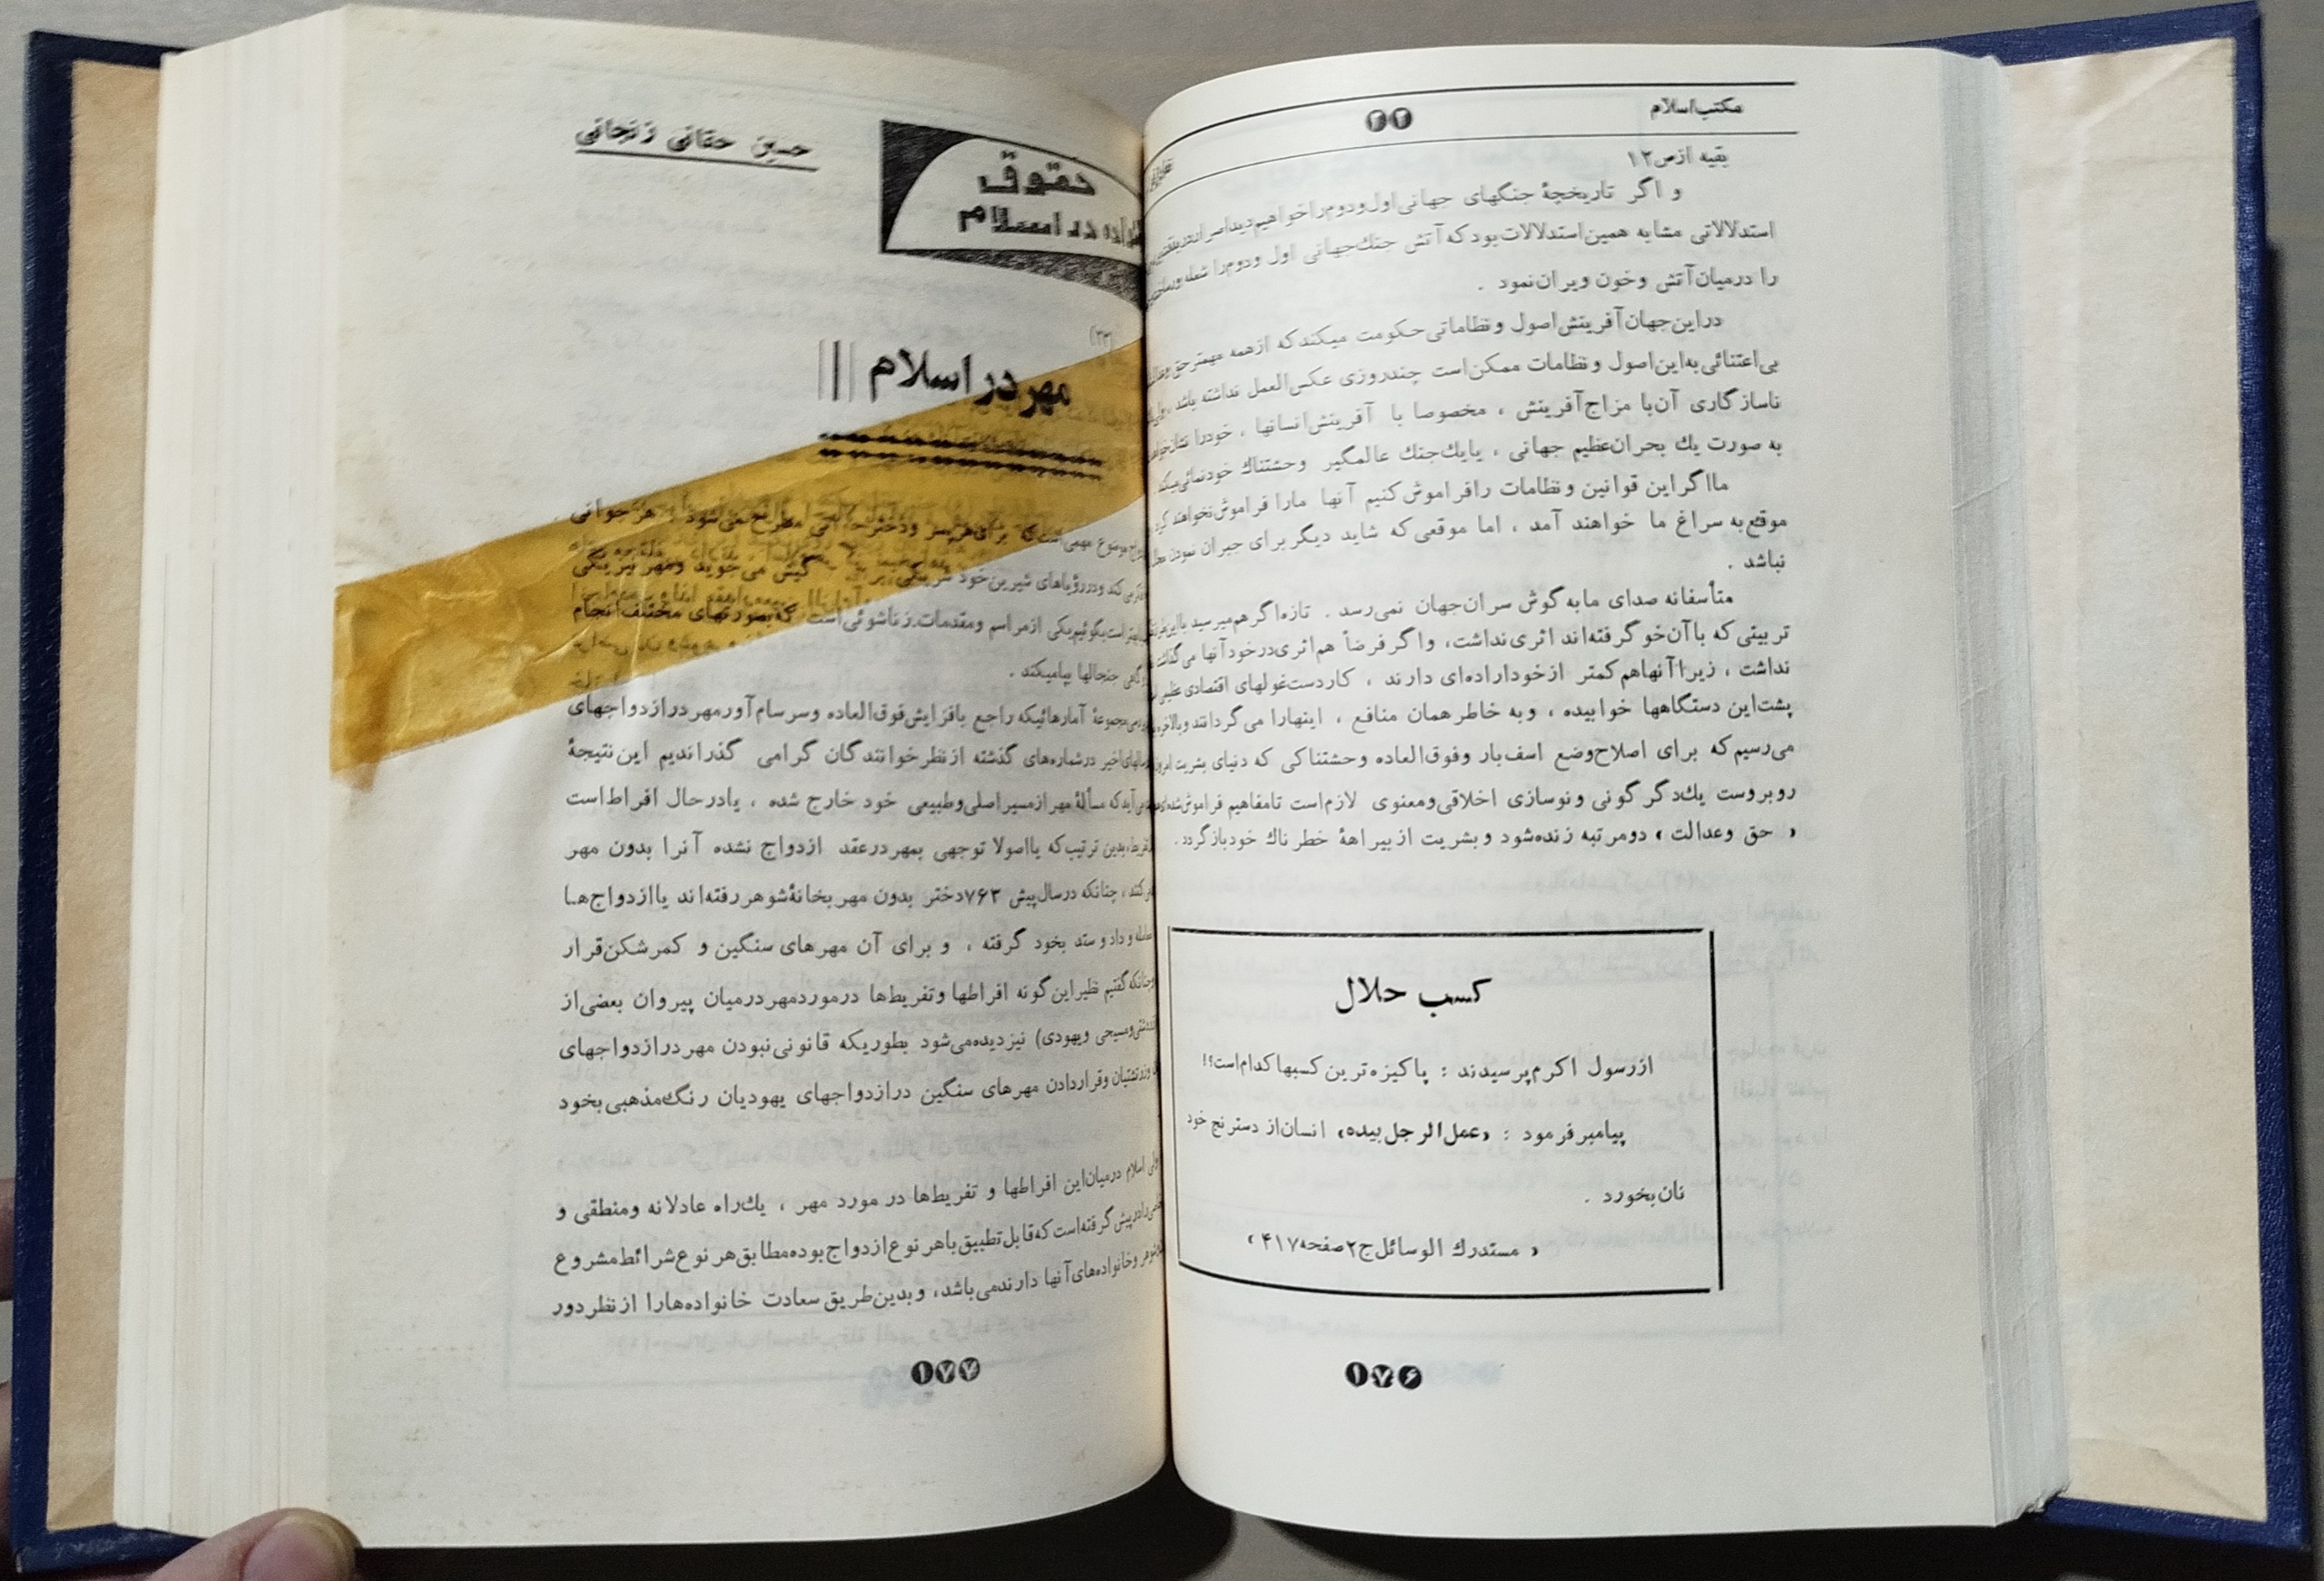 مکتب اسلام
۳۲
بقیه از ص ۱۲
و اگر تاریخچهٔ جنگهای جهانی اول و دوم را خواهیم دید
استدلالاتی مشابه همین استدلالات بود که آتش جنك جهانی اول ودوم را شعله ور ساخت
را درمیان آتش وخون ویران نمود .
در این جهان آفرینش اصول و نظاماتی حکومت میکند که از همه مهمتر حق و
بی اعتنائی به این اصول و نظامات ممکن است چند روزی عکس العمل نداشته باشد ،
ناسازگاری آن با مزاج آفرینش ، مخصوصا با آفرینش انسانها ، خود را نشان
به صورت یك بحران عظیم جهانی ، یا یك جنك عالمگیر وحشتناك خودنمائی میکند
ما اگر این قوانین و نظامات را فراموش کنیم آنها ما را فراموش نخواهند کرد
موقع به سراغ ما خواهند آمد ، اما موقعی که شاید دیگر برای جبران نمودن
نباشد .
متأسفانه صدای ما به گوش سران جهان نمی رسد . تازه اگر هم میرسید با این
تربیتی که با آن خو گرفته اند اثری نداشت، و اگر فرضاً هم اثری در خود آنها می گذاشت
نداشت ، زیرا آنها هم کمتر از خود اراده ای دارند ، کار دست غولهای اقتصادی عظیم
پشت این دستگاهها خوابیده ، و به خاطر همان منافع ، اینها را می گردانند و بالاخره
می رسیم که برای اصلاح وضع اسف بار وفوق العاده وحشتناکی که دنیای بشریت امروز
روبروست یك دگرگونی و نوسازی اخلاقی ومعنوی لازم است تا مفاهیم فراموش شده ای
« حق وعدالت » دومرتبه زنده شود و بشریت از بیراههٔ خطرناك خود بازگردد .
کسب حلال
از رسول اکرم پرسیدند : پاکیزه ترین کسبها کدام است؟!
پیامبر فرمود : «عمل الرجل بیده» انسان از دسترنج خود
نان بخورد .
« مستدرك الوسائل ج۲ صفحه ۴۱۷ »
۱۷۶
حسین حقانی زنجانی
حقوق
خانواده در اسلام
(۳۳)
مهر در اسلام
موضوع مهمی است که برای هر پسر ودختر جوانی مطرح می شود . هر جوانی
فکر می کند و در رؤیاهای شیرین خود شریکی برای زندگیش می جوید ومهر نیز یکی
بهتر است بگوئیم یکی از مراسم ومقدمات زناشوئی است که بصورتهای مختلف انجام
گاهی جنجالها بپا میکند .
مجموعهٔ آمارهائیکه راجع بافزایش فوق العاده وسرسام آور مهر در ازدواجهای
سالهای اخیر در شماره های گذشته از نظر خوانندگان گرامی گذراندیم این نتیجهٔ
می آید که مسألهٔ مهر از مسیر اصلی وطبیعی خود خارج شده ، یا در حال افراط است
تفریط، بدین ترتیب که یا اصولا توجهی بمهر در عقد ازدواج نشده آنرا بدون مهر
می کنند ، چنانکه در سال پیش ۷۶۳ دختر بدون مهر بخانهٔ شوهر رفته اند یا ازدواج هـا
معامله و داد و ستد بخود گرفته ، و برای آن مهرهای سنگین و کمرشکن قرار
وچنانکه گفتیم نظیر این گونه افراطها وتفریط ها در مورد مهر درمیان پیروان بعضی از
ومسیحی ویهودی) نیز دیده می شود بطوریکه قانونی نبودن مهر در ازدواجهای
وزرتشتیان و قراردادن مهرهای سنگین در ازدواجهای یهودیان رنگ مذهبی بخود
ولی اسلام درمیان این افراطها و تفریط ها در مورد مهر ، یك راه عادلانه ومنطقی و
را در پیش گرفته است که قابل تطبیق با هر نوع ازدواج بوده مطابق هر نوع شرائط مشروع
شوهر وخانواده های آنها دارند می باشد، و بدین طریق سعادت خانواده ها را از نظر دور
۱۷۷